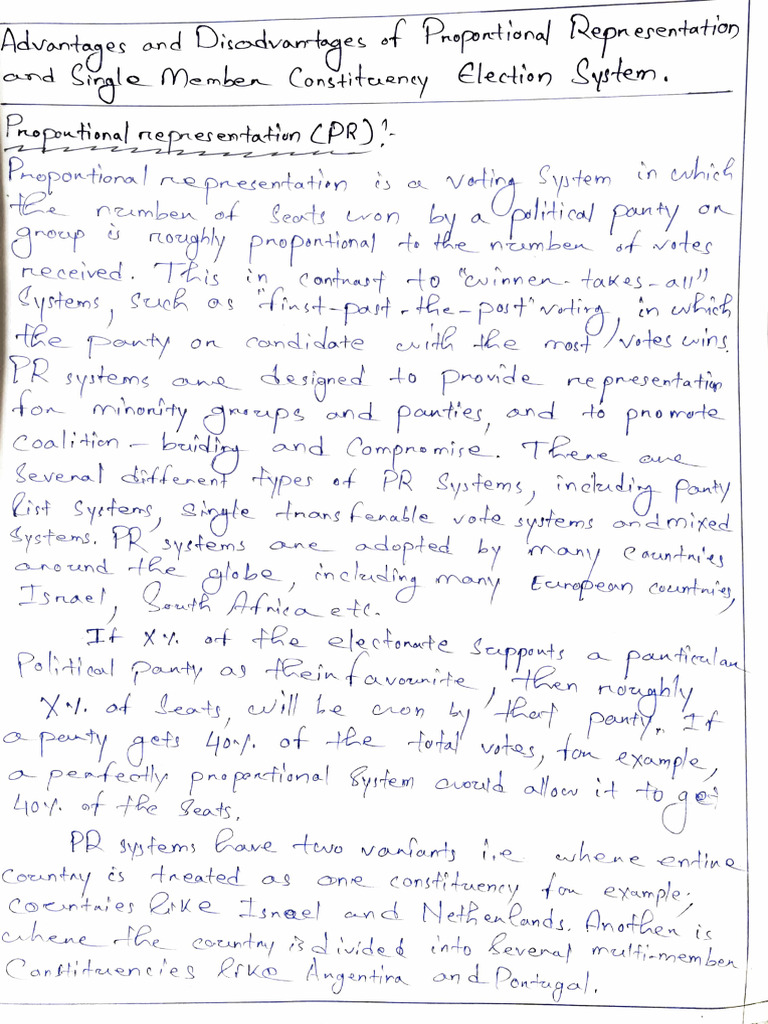 Advantages and Disadvantages of Proportional Representation
and Single Member Constituency Election System.
Proportional representation (PR):-
Proportional representation is a voting system in which
the number of seats won by a political party or
group is roughly proportional to the number of votes
received. This in contrast to "winner-takes-all"
systems, such as "first-past-the-post" voting, in which
the party or candidate with the most votes wins.
PR systems are designed to provide representation
for minority groups and parties, and to promote
coalition-bruiding and compromise. There are
several different types of PR systems, including party
list systems, single transferable vote systems and mixed
systems. PR systems are adopted by many countries
around the globe, including many European countries,
Israel, South Africa etc.
If X% of the electorate supports a particular
Political party as their favourite, then roughly
X% of seats, will be won by that party. If
a party gets 40% of the total votes, for example,
a perfectly proportional system would allow it to get
40% of the seats.
PR systems have two variants i.e where entire
country is treated as one constituency for example;
countries like Israel and Netherlands. Another is
where the country is divided into several multi-member
Constituencies like Argentina and Portugal.